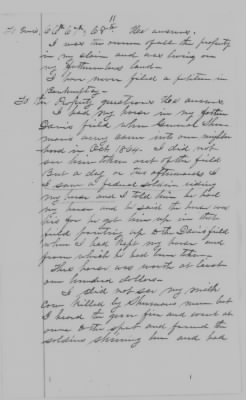 11
To Inter. 66th 67th, 68th the answer.
I was the owner of all the property
in my claim and was living on
my land
I have never filed a petition in
Bankruptcy
To the Property questions the answer
I had my horse in my
Davis field when Genl Sherman's
came into our neighbor
hood in Oct 1864. I did not
see him taken out of the field
But a day or two afterwards
I saw a federal soldier riding
my horse and I told him he had
my horse and he said the horse was
his for he got him up in that
field pointing up to the Davis field
where I had kept my horse and
from which he had been taken
This horse was worth at least
one hundred dollars.
I did not see my milk
cow killed by Shermans men but
I heard the gun fire and went at
once to the spot and found the
soldiers skinning him and had